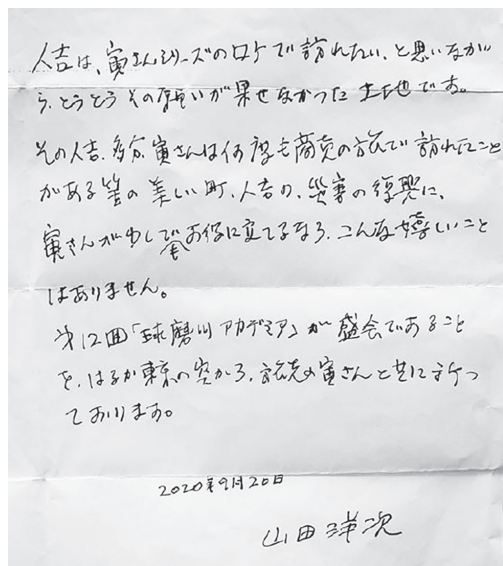 人吉は、寅さんシリーズのロケで訪れたい、と思いなが
ら、とうとうその願いが果せなかった土地です。
その人吉、多分寅さんは何度も商売の旅で訪れたこと
がある筈の美しい町、人吉の、災害の復興に、
寅さんが少しでもお役に立てるなら、こんな嬉しいこと
はありません。
第12回「球磨川アカデミア」が盛会であること
を、はるか東京の空から、旅先の寅さんと共に祈っ
ております。
2020年9月20日
山田洋次